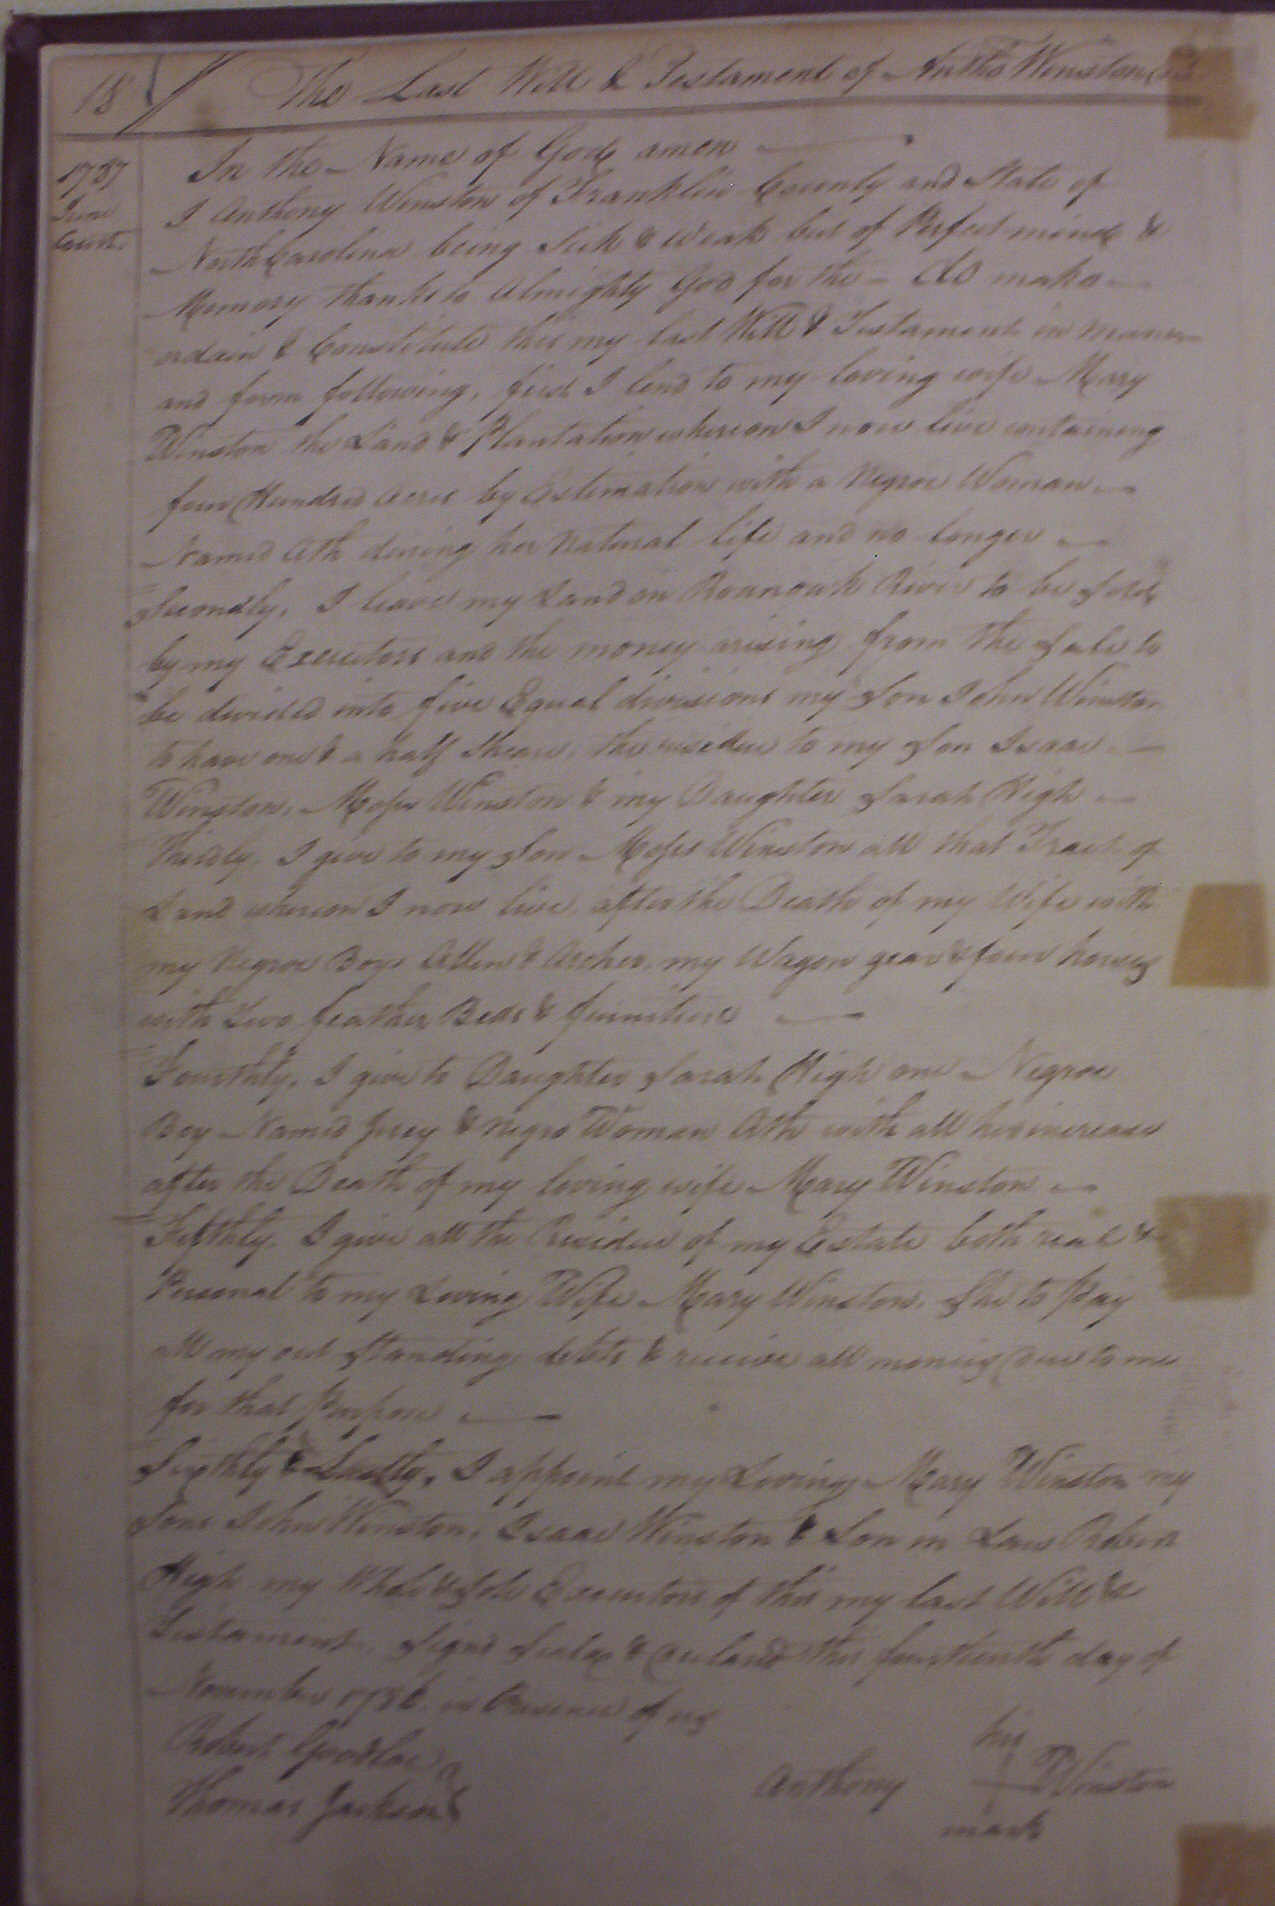 18
The Last Will & Testament of Antho Winston
1787
June
Court.
In the Name of God amen
I Anthony Winston of Franklin County and State of
North Carolina being Sick & Weak but of Perfect mind &
Memory thanks to Almighty God for the - do make
ordain & Constitute this my last Will & Testament in maner
and form following, first I lend to my loving wife Mary
Winston the Land & Plantation whereon I now live containing
four Hundred Acres by Estimation with a Negroe Woman
Named Ath during her Natural life and no longer
Secondly, I leave my Land on Roanoak River to be Sold
by my Executors and the money arising from the Sale to
be divided into five Equal divisions my Son John Winston
to have one & a half Shear, the residue to my Son Isaac
Winston, Moses Winston & my Daughter Sarah High
Thirdly. I give to my Son Moses Winston all that Tract of
Land whereon I now live, after the Death of my Wife with
my Negroe Boys Allen & Archer, my Wagon gear & four horses
with Two feather Beds & furniture
Fourthly, I give to Daughter Sarah High one Negroe
Boy Named & negro Woman Ath with all her increase
after the Death of my loving wife Mary Winston
Fifthly. I give all the Residue of my Estate both real &
Personal to my Loving Wife Mary Winston. She to Pay
all my out Standing debts & receive all moneys due to me
for that Purpose
Sixthly & Lastly, I appoint my Loving Mary Winston my
Sons John Winston, Isaac Winston & Son in Law Robert
High my Whole & Sole Executors of this my last Will &
Testament, Signd Seald & this fourteenth day of
November 1786 in Presence of us
Robert Goodloe
Thomas Jackson
his
Anthony + Winston
mark